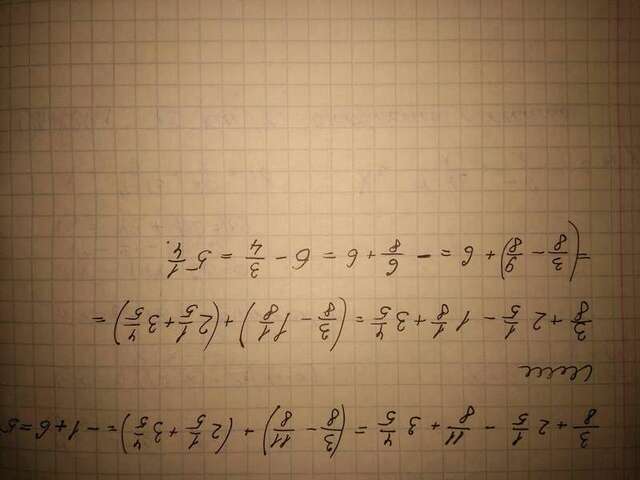 3/8 + 2 1/5 − 11/8 + 3 4/5 = (3/8 − 11/8) + (2 1/5 + 3 4/5) = −1+6=5
или
3/8 + 2 1/5 − 1 1/8 + 3 4/5 = (3/8 − 1 1/8) + (2 1/5 + 3 4/5) =
= (3/8 − 9/8) + 6 = − 6/8 + 6 = 6 − 3/4 = 5 1/4.